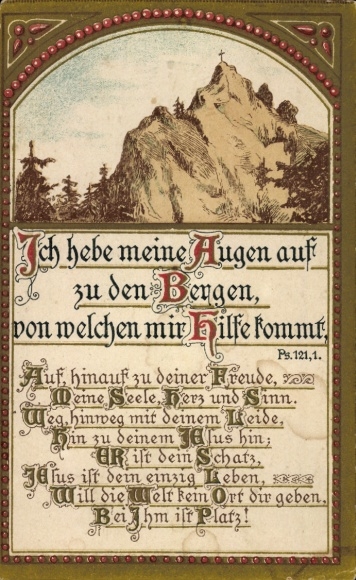 Ich hebe meine Augen auf
zu den Bergen,
von welchen mir Hilfe kommt,
Ps. 121,1.
Auf, hinauf zu deiner Freude,
Meine Seele, Herz und Sinn.
Weg, hinweg mit deinem Leide,
Hin zu deinem JEsus hin;
ER ist dein Schatz,
JEsus ist dein einzig Leben,
Will die Welt kein Ort dir geben,
Bei Ihm ist Platz!